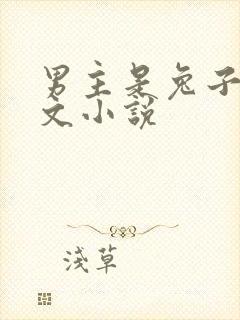 男主是兔子
文小说
浅草